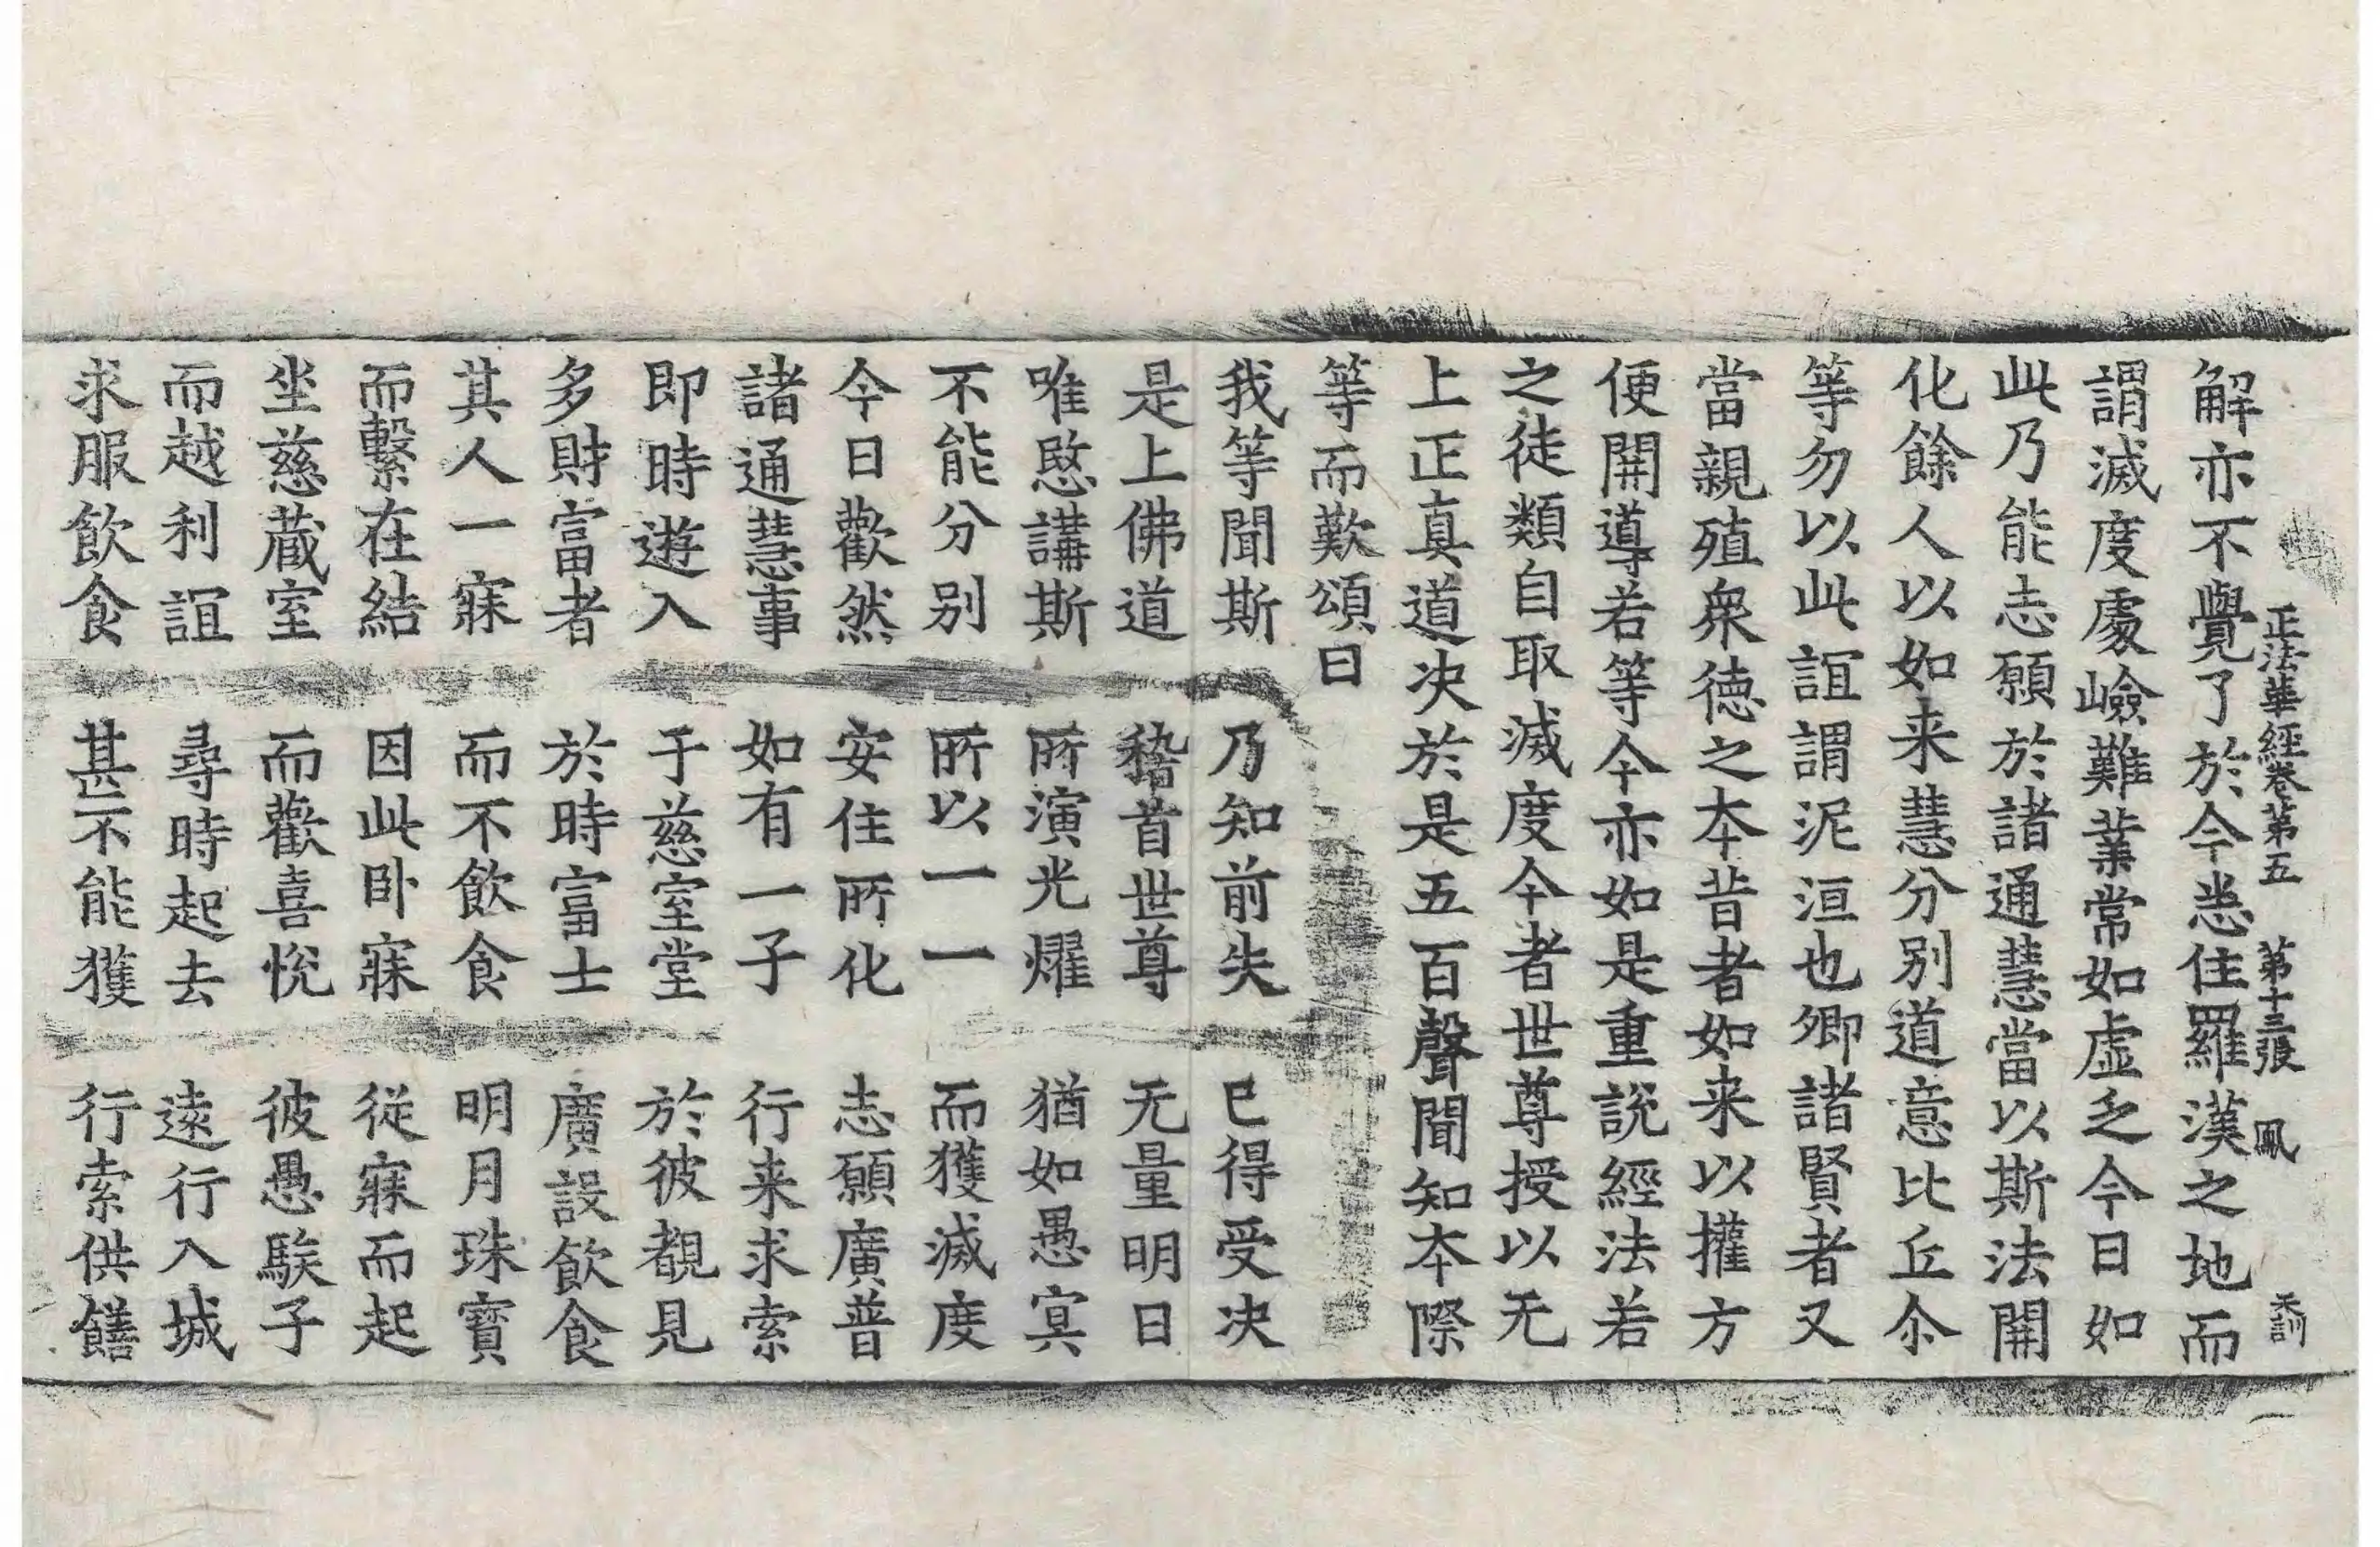 正法華經卷第五 第十三張 鳳 天訓
解亦不覺了於今悉住羅漢之地而
謂滅度處嶮難業常如虛乏今日如
此乃能志願於諸通慧當以斯法開
化餘人以如来慧分別道意比丘尒
等勿以此誼謂泥洹也卿諸賢者又
當親殖衆德之本昔者如来以權方
便開導若等今亦如是重說經法若
之徒類自取滅度今者世尊授以无
上正真道决於是五百聲聞知本際
等而歎頌曰
我等聞斯 乃知前失 已得受决
是上佛道 稽首世尊 无量明日
唯愍講斯 所演光耀 猶如愚冥
不能分別 所以一一 而獲滅度
今日歡然 安住所化 志願廣普
諸通慧事 如有一子 行来求索
即時遊入 于慈室堂 於彼覩見
多財富者 於時富士 廣設飲食
其人一寐 而不飲食 明月珠寶
而繫在結 因此卧寐 從寐而起
坐慈蔵室 而歡喜悅 彼愚騃子
而越利誼 尋時起去 遠行入城
求服飲食 甚不能獲 行索供饍